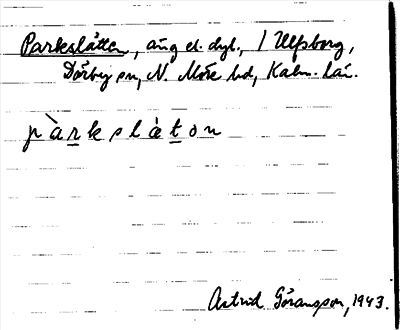 Parkslåtten, äng el. dyl., 1 Ulfsborg,
Dörby sn, N. Möre hd, Kalm. län.
pàrkslåtən
Astrid Göransson, 1943.